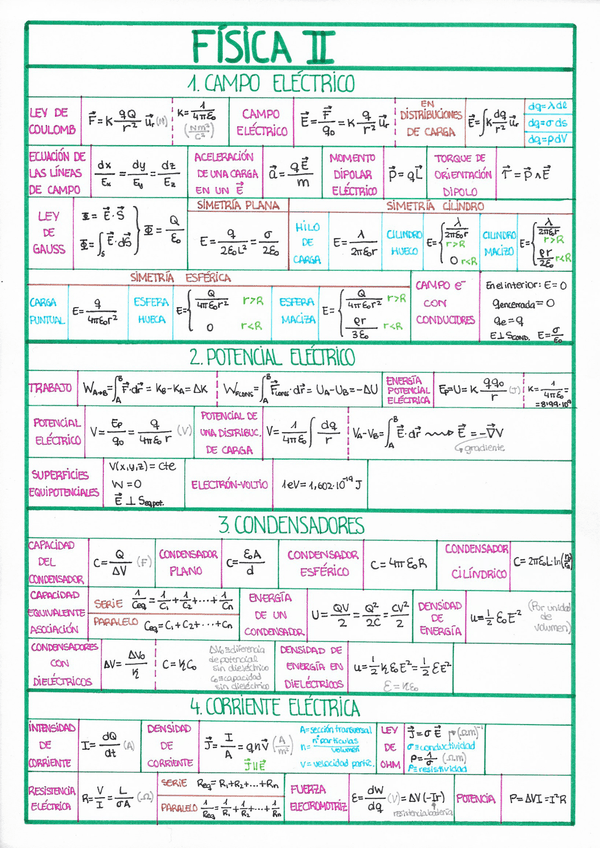 FÍSICA II
1. CAMPO ELÉCTRICO
LEY DE COULOMB F⃗ = K qQ/r² u⃗r (N) K = 1/4πε₀ (Nm²/C²)
CAMPO ELÉCTRICO E⃗ = F⃗/q₀ = K q/r² u⃗r
EN DISTRIBUCIONES DE CARGA E⃗ = ∫K dq/r² u⃗r
dq = λdl
dq = σds
dq = ρdV
ECUACIÓN DE LAS LÍNEAS DE CAMPO dx/Ex = dy/Ey = dz/Ez
ACELERACIÓN DE UNA CARGA EN UN E⃗ a⃗ = qE⃗/m
MOMENTO DIPOLAR ELÉCTRICO p⃗ = qL⃗
TORQUE DE ORIENTACIÓN DIPOLO τ⃗ = p⃗ ∧ E⃗
LEY DE GAUSS Φ = E⃗·S⃗ Φ = ∫s E⃗·dS⃗ } Φ = Q/ε₀
SIMETRÍA PLANA
E = q/2ε₀L² = σ/2ε₀
SIMETRÍA CILINDRO
HILO DE CARGA E = λ/2πε₀r
CILINDRO HUECO E = { λ/2πε₀r r>R
0 r<R
CILINDRO MACIZO E = { λ/2πε₀r r>R
ρr/2ε₀ r<R
SIMETRÍA ESFÉRICA
CARGA PUNTUAL E = q/4πε₀r²
ESFERA HUECA E = { Q/4πε₀r² r>R
0 r<R
ESFERA MACIZA E = { Q/4πε₀r² r>R
ρr/3ε₀ r<R
CAMPO e⁻ CON CONDUCTORES
En el interior: E = 0
qencerrada = 0
qe = q
E⊥Scond. E = σ/ε₀
2. POTENCIAL ELÉCTRICO
TRABAJO WA→B = ∫A^B F⃗·dr⃗ = KB - KA = ΔK WFcons = ∫A^B F⃗cons·dr⃗ = UA - UB = -ΔU
ENERGÍA POTENCIAL ELÉCTRICA Ep = U = K qq₀/r (J) K = 1/4πε₀ = = 8'99·10⁹
POTENCIAL ELÉCTRICO V = Ep/q₀ = q/4πε₀r (V)
POTENCIAL DE UNA DISTRIBUC. DE CARGA V = 1/4πε₀ ∫ dq/r
VA - VB = ∫A^B E⃗·dr⃗ ⟿ E⃗ = -∇⃗V
gradiente
SUPERFICIES EQUIPOTENCIALES
V(x,y,z) = cte
W = 0
E⃗ ⊥ Seqpot.
ELECTRÓN-VOLTIO 1eV = 1,602·10⁻¹⁹ J
3. CONDENSADORES
CAPACIDAD DEL CONDENSADOR C = Q/ΔV (F)
CONDENSADOR PLANO C = ε₀A/d
CONDENSADOR ESFÉRICO C = 4πε₀R
CONDENSADOR CILÍNDRICO C = 2πε₀L·ln
CAPACIDAD EQUIVALENTE ASOCIACIÓN
SERIE 1/Ceq = 1/C₁ + 1/C₂ + ··· + 1/Cn
PARALELO Ceq = C₁ + C₂ + ··· + Cn
ENERGÍA DE UN CONDENSADOR U = QV/2 = Q²/2C = CV²/2
DENSIDAD DE ENERGÍA u = 1/2 ε₀E² (Por unidad de volumen)
CONDENSADORES CON DIELÉCTRICOS ΔV = ΔV₀/K C = KC₀
ΔV₀ = diferencia de potencial sin dieléctrico
C₀ = capacidad sin dieléctrico
DENSIDAD DE ENERGÍA EN DIELÉCTRICOS u = 1/2 Kε₀E² = 1/2 εE²
ε = Kε₀
4. CORRIENTE ELÉCTRICA
INTENSIDAD DE CORRIENTE I = dQ/dt (A)
DENSIDAD DE CORRIENTE J⃗ = I/A = qnv⃗ (A/m²)
J⃗ ∥ E⃗
A = sección transversal
n = nºpartículas/volumen
v = velocidad partíc.
LEY DE OHM J⃗ = σE⃗ (Ωm)⁻¹
σ = conductividad
ρ = 1/σ (Ωm)
ρ = resistividad
RESISTENCIA ELÉCTRICA R = V/I = L/σA (Ω)
SERIE Req = R₁ + R₂ + ··· + Rn
PARALELO 1/Req = 1/R₁ + 1/R₂ + ··· + 1/Rn
FUERZA ELECTROMOTRIZ ε = dW/dq (V) = ΔV (-Ir)
resistencia batería
POTENCIA P = ΔVI = I²R